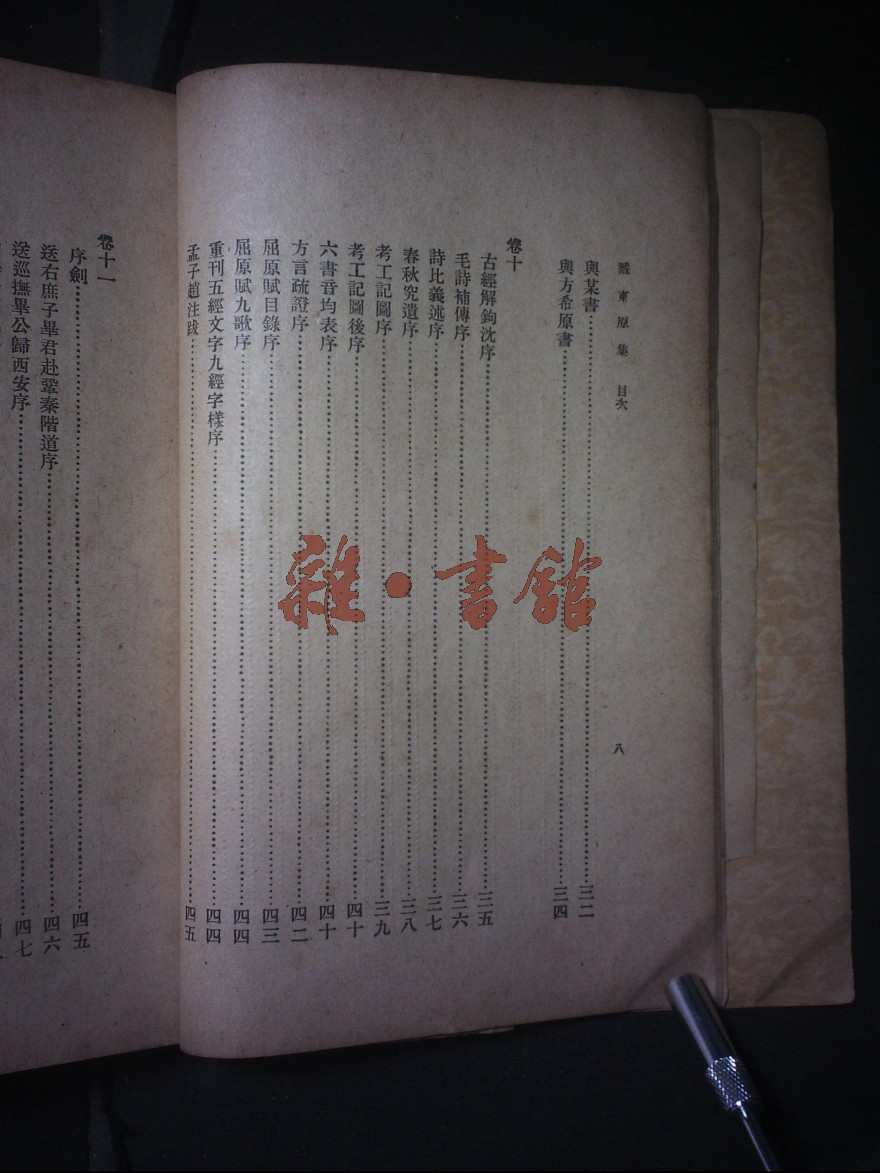 戴東原集 目次 八
與某書 三二
與方希原書 三四
卷十
古經解鉤沈序 三五
毛詩補傳序 三六
詩比義述序 三七
春秋究遺序 三八
考工記圖序 三九
考工記圖後序 四十
六書音均表序 四十
方言疏證序 四二
屈原賦目錄序 四三
屈原賦九歌序 四四
重刊五經文字九經字樣序 四四
孟子趙注跋 四五
卷十一
序劍 四五
送右庶子畢君赴鞏秦階道序 四六
送巡撫畢公歸西安序 四七
雜·書館